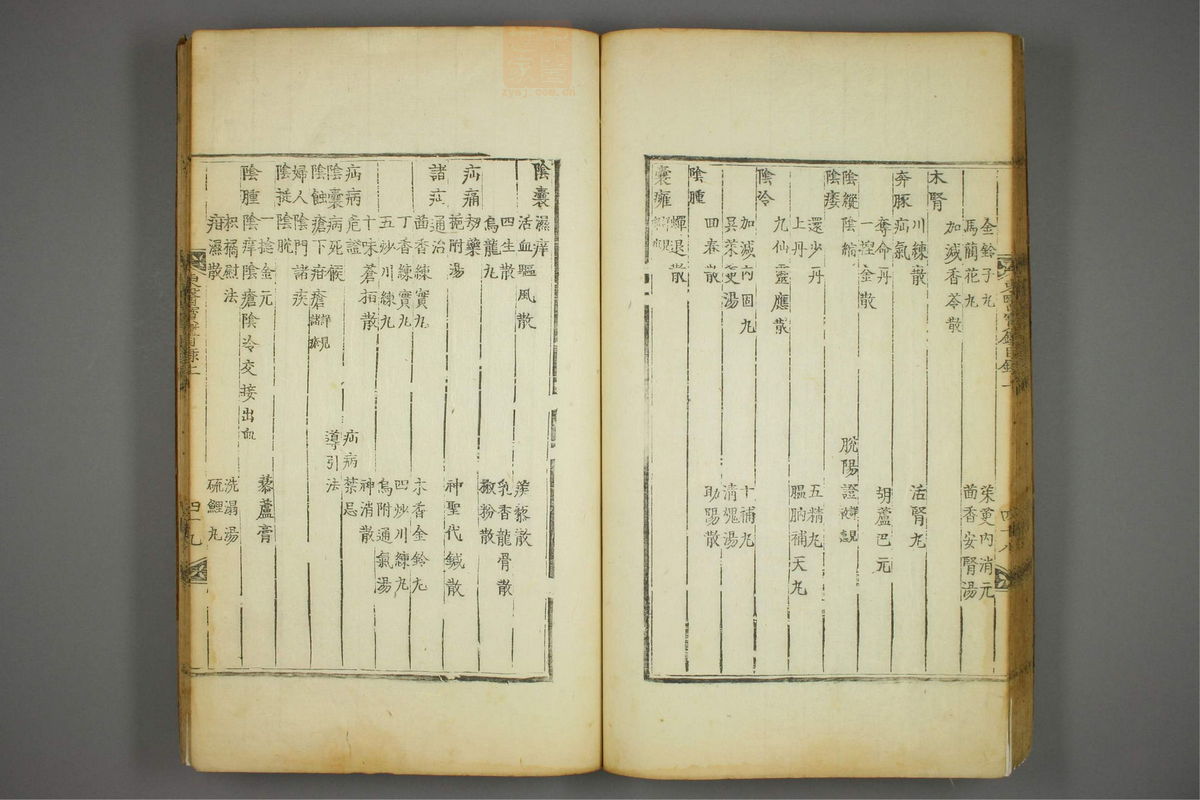 金鈴子丸
茱萸內消元
馬藺花丸
茴香安腎湯
加減香苓散
木腎
川練散
活腎丸
奔豚
疝氣
奪命丹
胡蘆巴元
一捏金散
陰縱
陰縮
脫陽證
陰痿
還少丹
五精丸
上丹
膃肭補天丸
九仙靈應散
陰冷
加減內固丸
十補丸
吳茱萸湯
清魂湯
回春散
助陽散
陰腫
蟬退散
囊癰
四十八
陰囊濕痒
活血驅風散
蒺藜散
四生散
乳香龍骨散
烏龍丸
椒粉散
疝痛劫藥
梔附湯
神聖代鍼散
諸疝通治
茴香練實丸
木香金鈴丸
丁香練實丸
四炒川練丸
五炒川練丸
烏附通氣湯
十味蒼栢散
神消散
疝病危證
疝病禁忌
陰囊病死候
導引法
陰蝕瘡下疳瘡
婦人陰門諸疾
陰挺陰脫
一捻金元
藜蘆膏
陰腫陰痒陰瘡陰冷交接出血
枳橘慰法
洗溻湯
疳濕散
硫鯉丸
四十九
zysj.com.cn